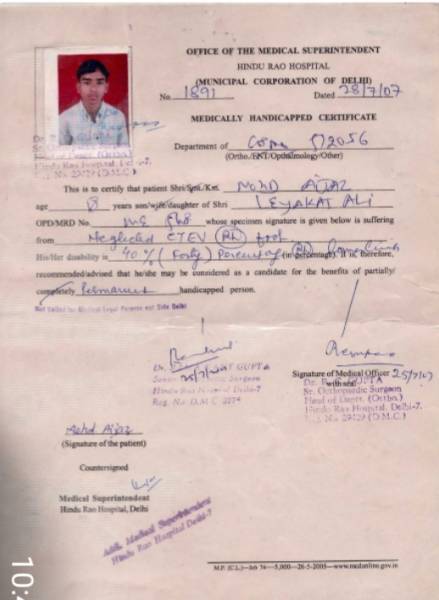 OFFICE OF THE MEDICAL SUPERINTENDENT
HINDU RAO HOSPITAL
(MUNICIPAL CORPORATION OF DELHI)
No 1891 Dated 28/7/07
MEDICALLY HANDICAPPED CERTIFICATE
Department of
(Ortho./ENT/Opthalmology/Other)
This is to certify that patient Shri/Smt./Km. MOHD AIJAZ
age years son/wife/daughter of Shri LEYAKAT ALI
OPD/MRD No. whose specimen signature is given below is suffering
from Neglected CTEV (Rt) foot
His/Her disability is 40% (Forty) Percentage (in percentage). It is, therefore,
recommended/advised that he/she may be considered as a candidate for the benefits of partially/
completely Permanent handicapped person.
Not Valid for Medico Legal Purpose
25/7/07
GUPTA
Surgeon
Hindu Rao Hospital Delhi-7
Reg. No. D.M.C
Signature of Medical Officer 25/7/07
with seal
GUPTA
Sr. Orthopaedic Surgeon
Head of Deptt. (Ortho.)
Hindu Rao Hospital, Delhi-7.
(D.M.C.)
Mohd Aijaz
(Signature of the patient)
Countersigned
Medical Superintendent
Hindu Rao Hospital, Delhi
Addl. Medical Superintendent
Hindu Rao Hospital Delhi-7
M.P. (C.L.)—Job 74—5,000—26-5-2005—www.mcdonline.gov.in